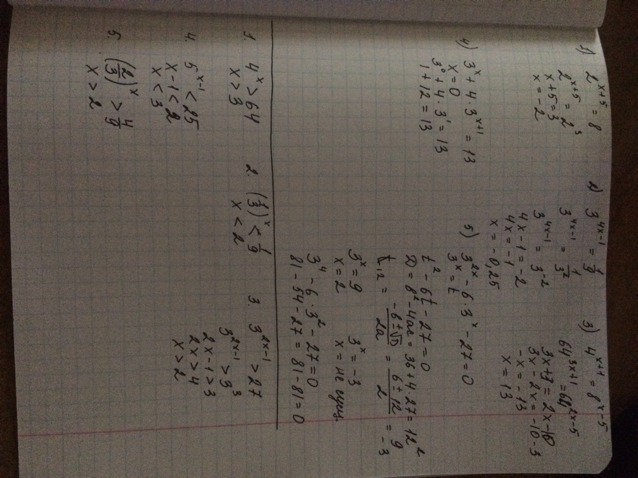 1) 2^{x+5} = 8
2^{x+5} = 2^3
x+5=3
x=-2
2) 3^{4x-1} = 1/9
3^{4x-1} = 1/3^2
3^{4x-1} = 3^{-2}
4x-1=-2
4x=-1
x=-0,25
3) 4^{x+1} = 8^{x-5}
64^{3x+1} = 64^{2x-5}
3x+7=2x-10
3x-2x=-10-3
-x=-13
x=13
4) 3^x + 4 · 3^{x+1} = 13
x=0
3^0 + 4 · 3^1 = 13
1+12=13
5) 3^{2x} - 6 · 3^x - 27 = 0
3^x = t
t^2 - 6t - 27 = 0
D = b^2 - 4ac = 36 + 4 · 27 = 12^2
t_{1,2} = (-b ± √D)/2a = (6 ± 12)/2 = 9 -3
3^x = 9    3^x = -3
x=2    x = не сущ.
3^4 - 6 · 3^2 - 27 = 0
81 - 54 - 27 = 81 - 81 = 0
1. 4^x > 64
x > 3
2. (1/3)^x < 1/9
x < 2
3. 3^{2x-1} > 27
3^{2x-1} > 3^3
2x-1>3
2x>4
x>2
4. 5^{x-1} < 25
x-1<2
x<3
5. (2/3)^x > 4/9
x>2